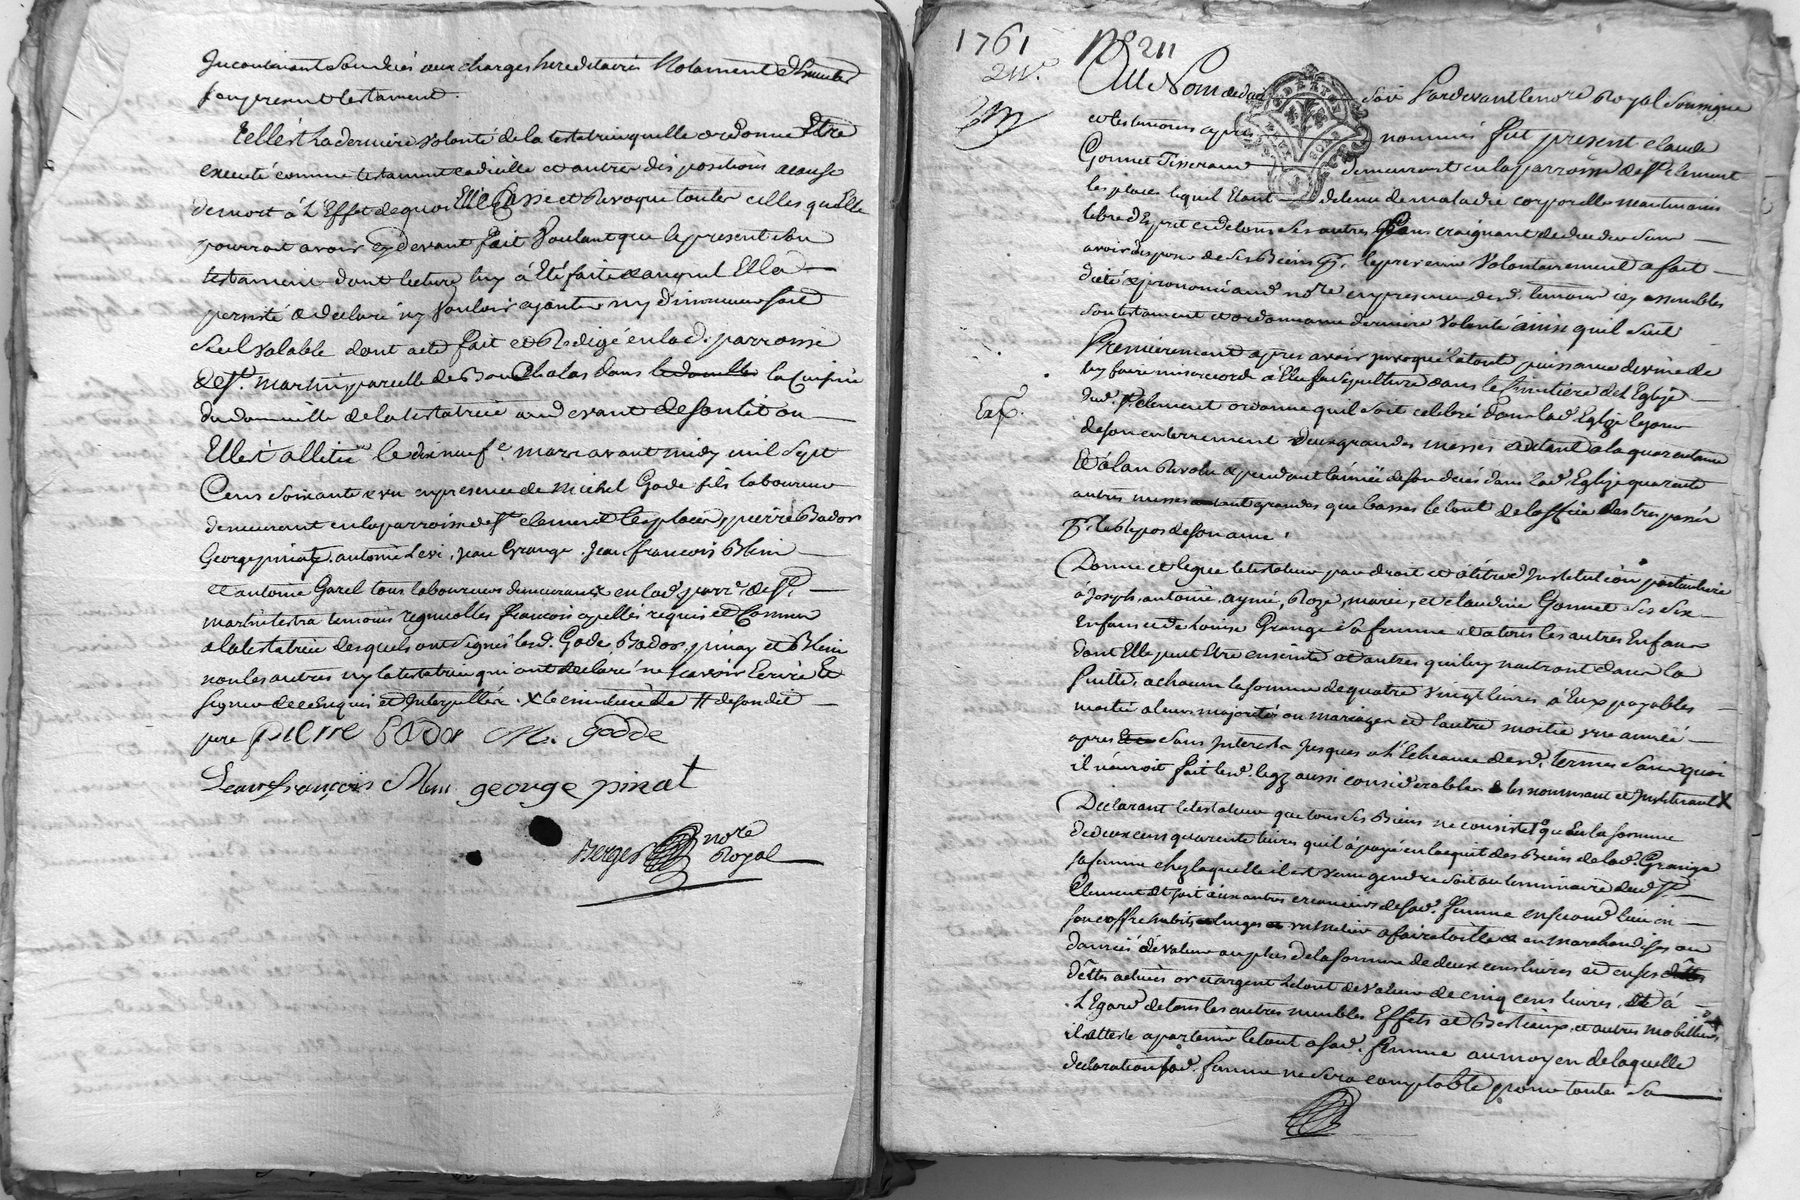 Incontinant son décès aux charges hereditaires Notament d'Executer
son present testament.
Telle est La derniere volonté de la testatrice quelle ordonne Etre
executé comme testament codicille et autres dispositions a cause
de mort à L'Effet de quoi Elle Casse et Revoque toutes celles quelle
pourroit avoir cy devant fait Voulant que le present son
testament dont lecture luy à Eté faite auquel Ella
persisté & declaré ny vouloir ajouter ny diminuer soit
seul valable dont acte fait et Redigé en lad. parroisse
de St. martin parcelle de Bou Chalas dans le domille la Cuisine
du domicille de la testatrice au devant de son lit ou
Elle est allitée le dix neufe. mars avant midy mil sept
Cens soixante & un en presence de Michel Gode fils laboureur
demeurant en la parroisse de St clement les places, pierre Bador
George pinat, antoine Levi, Jean Grange, Jean francois Blein
et antoine Garel tous laboureurs demeurants en lad. parr. de St.
martin lestra temoins regnicolles francois apellés requis et Connus
a la testatrice desquels ont signé lesd. Gode, Bador, pinay et Blein
non les autres ny la testatrice qui ont declaré ne scavoir Ecrire &
signer de ce Enquis et Interpellée. X le cimetiere de # de son dit
pere pierre bador M. godde
Jean françois Blein george pinat
Berger nore Royal
1761 No 211
211e.
Au Nom de dieu soit Pardevant le nore Royal soussigné
et les temoins apres nommés fut present claude
Gonnet Tisserand demeurant en la parroisse de St. clement
les places lequel Etant detenu de maladie corporelle neantmoins
libre d'Esprit et de tous ses autres sens craignant de deceder sans
avoir disposé de ses Biens pr. le prevenir Volontairement a fait
dicté & prononcé aud nore en presence desd. temoins icy assemblés
son testament et ordonnance derniere volonté ainsi quil suit
Premierement apres avoir invoqué la toute puissance divine de
luy faire misericorde à Elu sa sepulture dans le Cimitiere de l'Eglise
Exp.
dud. St. clement ordonne quil soit celebré dans lad. Eglize le jour
de son enterrement deux grandes messes autant a la quarantaine
Et à l'an Revolu & pendant l'année de son decés dans lad. Eglize quarante
autres messes tant grandes que basses le tout de l'office des trepassés
pr. le Repos de son ame.
Donne et legue le testateur par droit et à titre d'Institution particuliere
à Joseph, antoine, aymé, Roze, marie, et claudine Gonnet ses six
Enfans et de Louise Grange sa femme & à tous les autres Enfans
dont Elle peut Etre enceinte et autres quil luy naitront dans la
suitte, a chacun la somme de quatre vingt livres à Eux payables
moitié a leurs majorités ou mariages et l'autre moitié une année
apres sans Interets Jusques a l'Echeance desd. termes sans quoi
il n'auroit fait lesd. legz aussi considerables les nommant et Instituant X
Declarant le testateur que tous ses Biens ne consistent que En la somme
de deux cens quarente livres quil à payé en l'acquit des Biens de lad. Grange
sa femme chez laquelle il est venu gendre soit au luminaire dud. St.
Clement & soit à un autres creanciers de sad. femme en second lieu en
son coffre habits linges un metier a faire toille & en marchandises ou
danrées de valeur au plus de la somme de deux cens livres et en ses
dêttes actives or et argent le tout de valeur de cinq cens livres. & à
l'Egard de tous les autres meubles Effets et Bestiaux, et autres mobilliers
il atteste apartenir le tout a sad. femme au moyen de laquelle
declaration sad. femme ne sera comptable pour toute sa